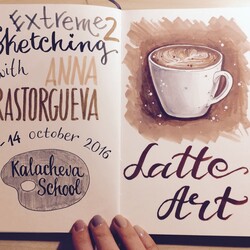 Extreme 2
Sketching
with ANNA
RASTORGUEVA
-14 october 2016
Kalacheva
School
Latte
Art